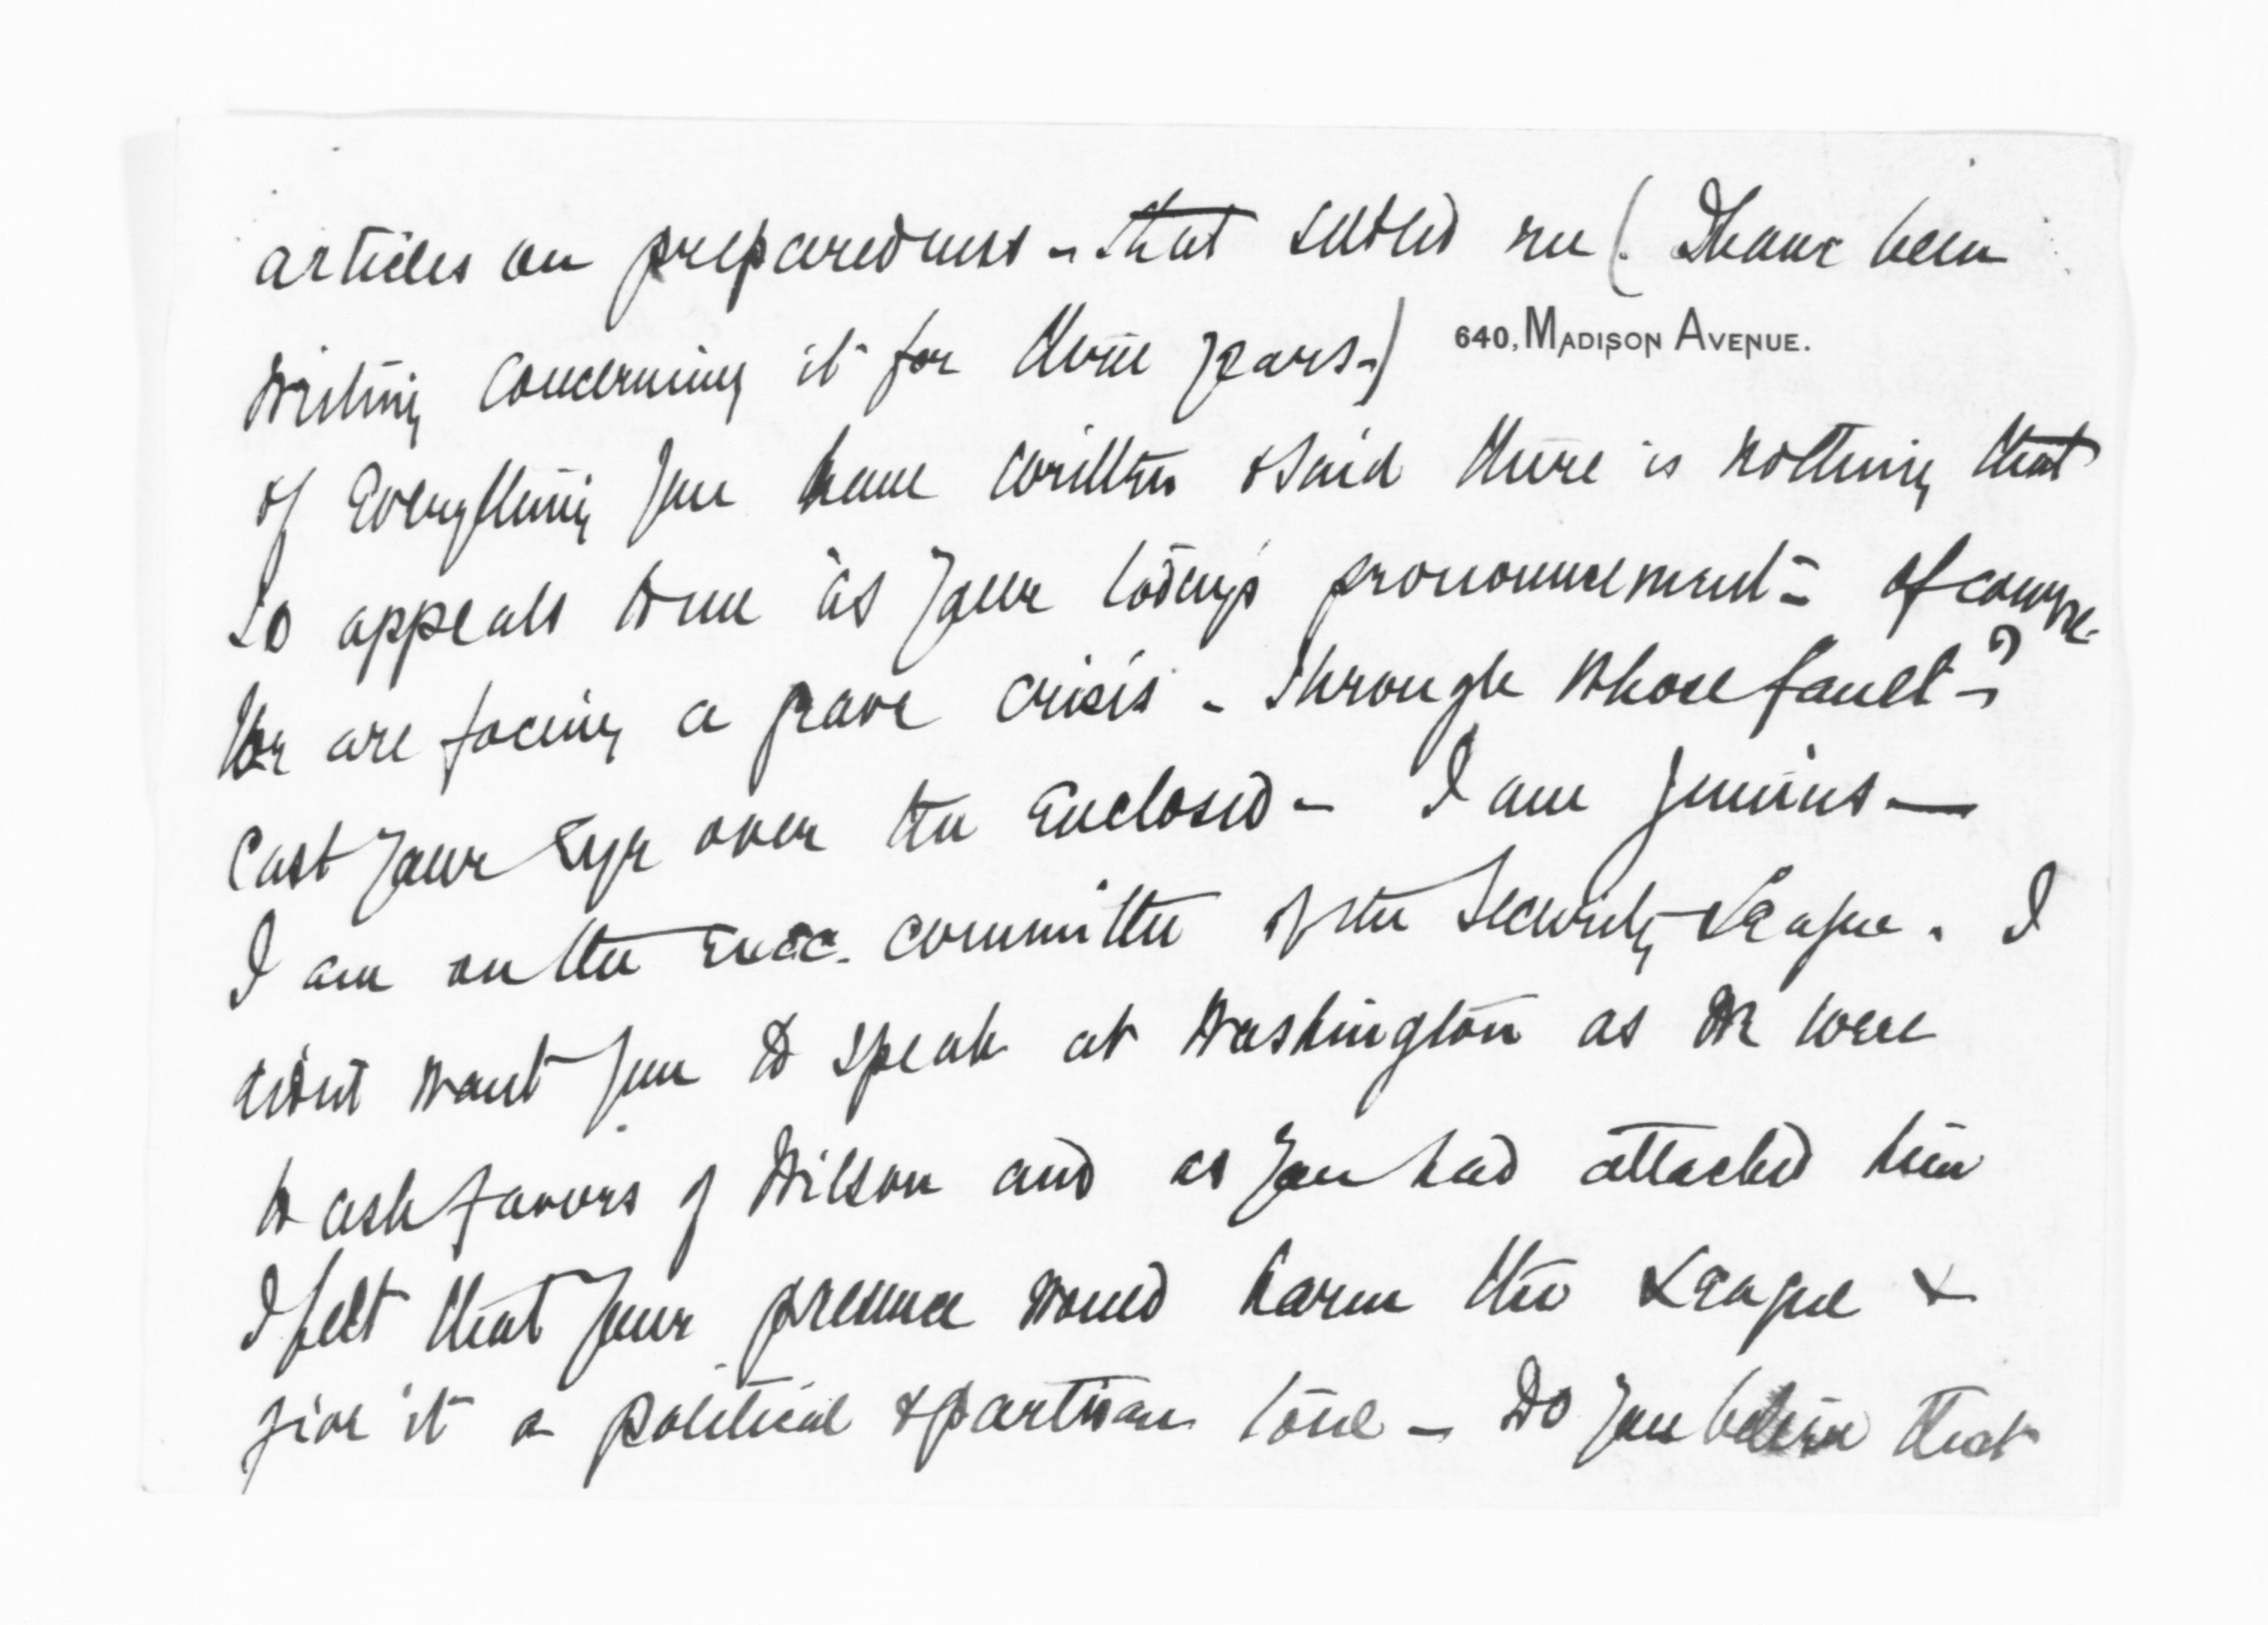 articles on preparedness - that settled me (I have been
640, MADISON AVENUE.
writing concerning it for three years -)
of Everything you have written & said there is nothing that
so appeals to me as your today's pronouncement - of course
we are facing a grave crisis - Through whose fault - ?
Cast your Eye over the Enclosed - I am Junius —
I am on the Exec. committee of the Security League. I
didn't want you to speak at Washington as we were
to ask favors of Wilson and as you had attacked him
I felt that your presence would harm the League &
give it a political & partisan tone - Do you believe that